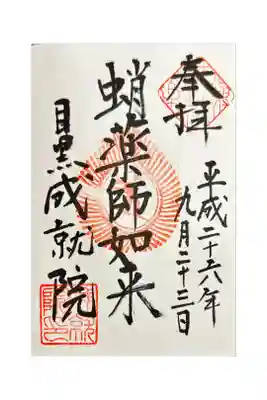 奉拝
平成二十六年
九月二十三日
蛸薬師如来
目黒成就院